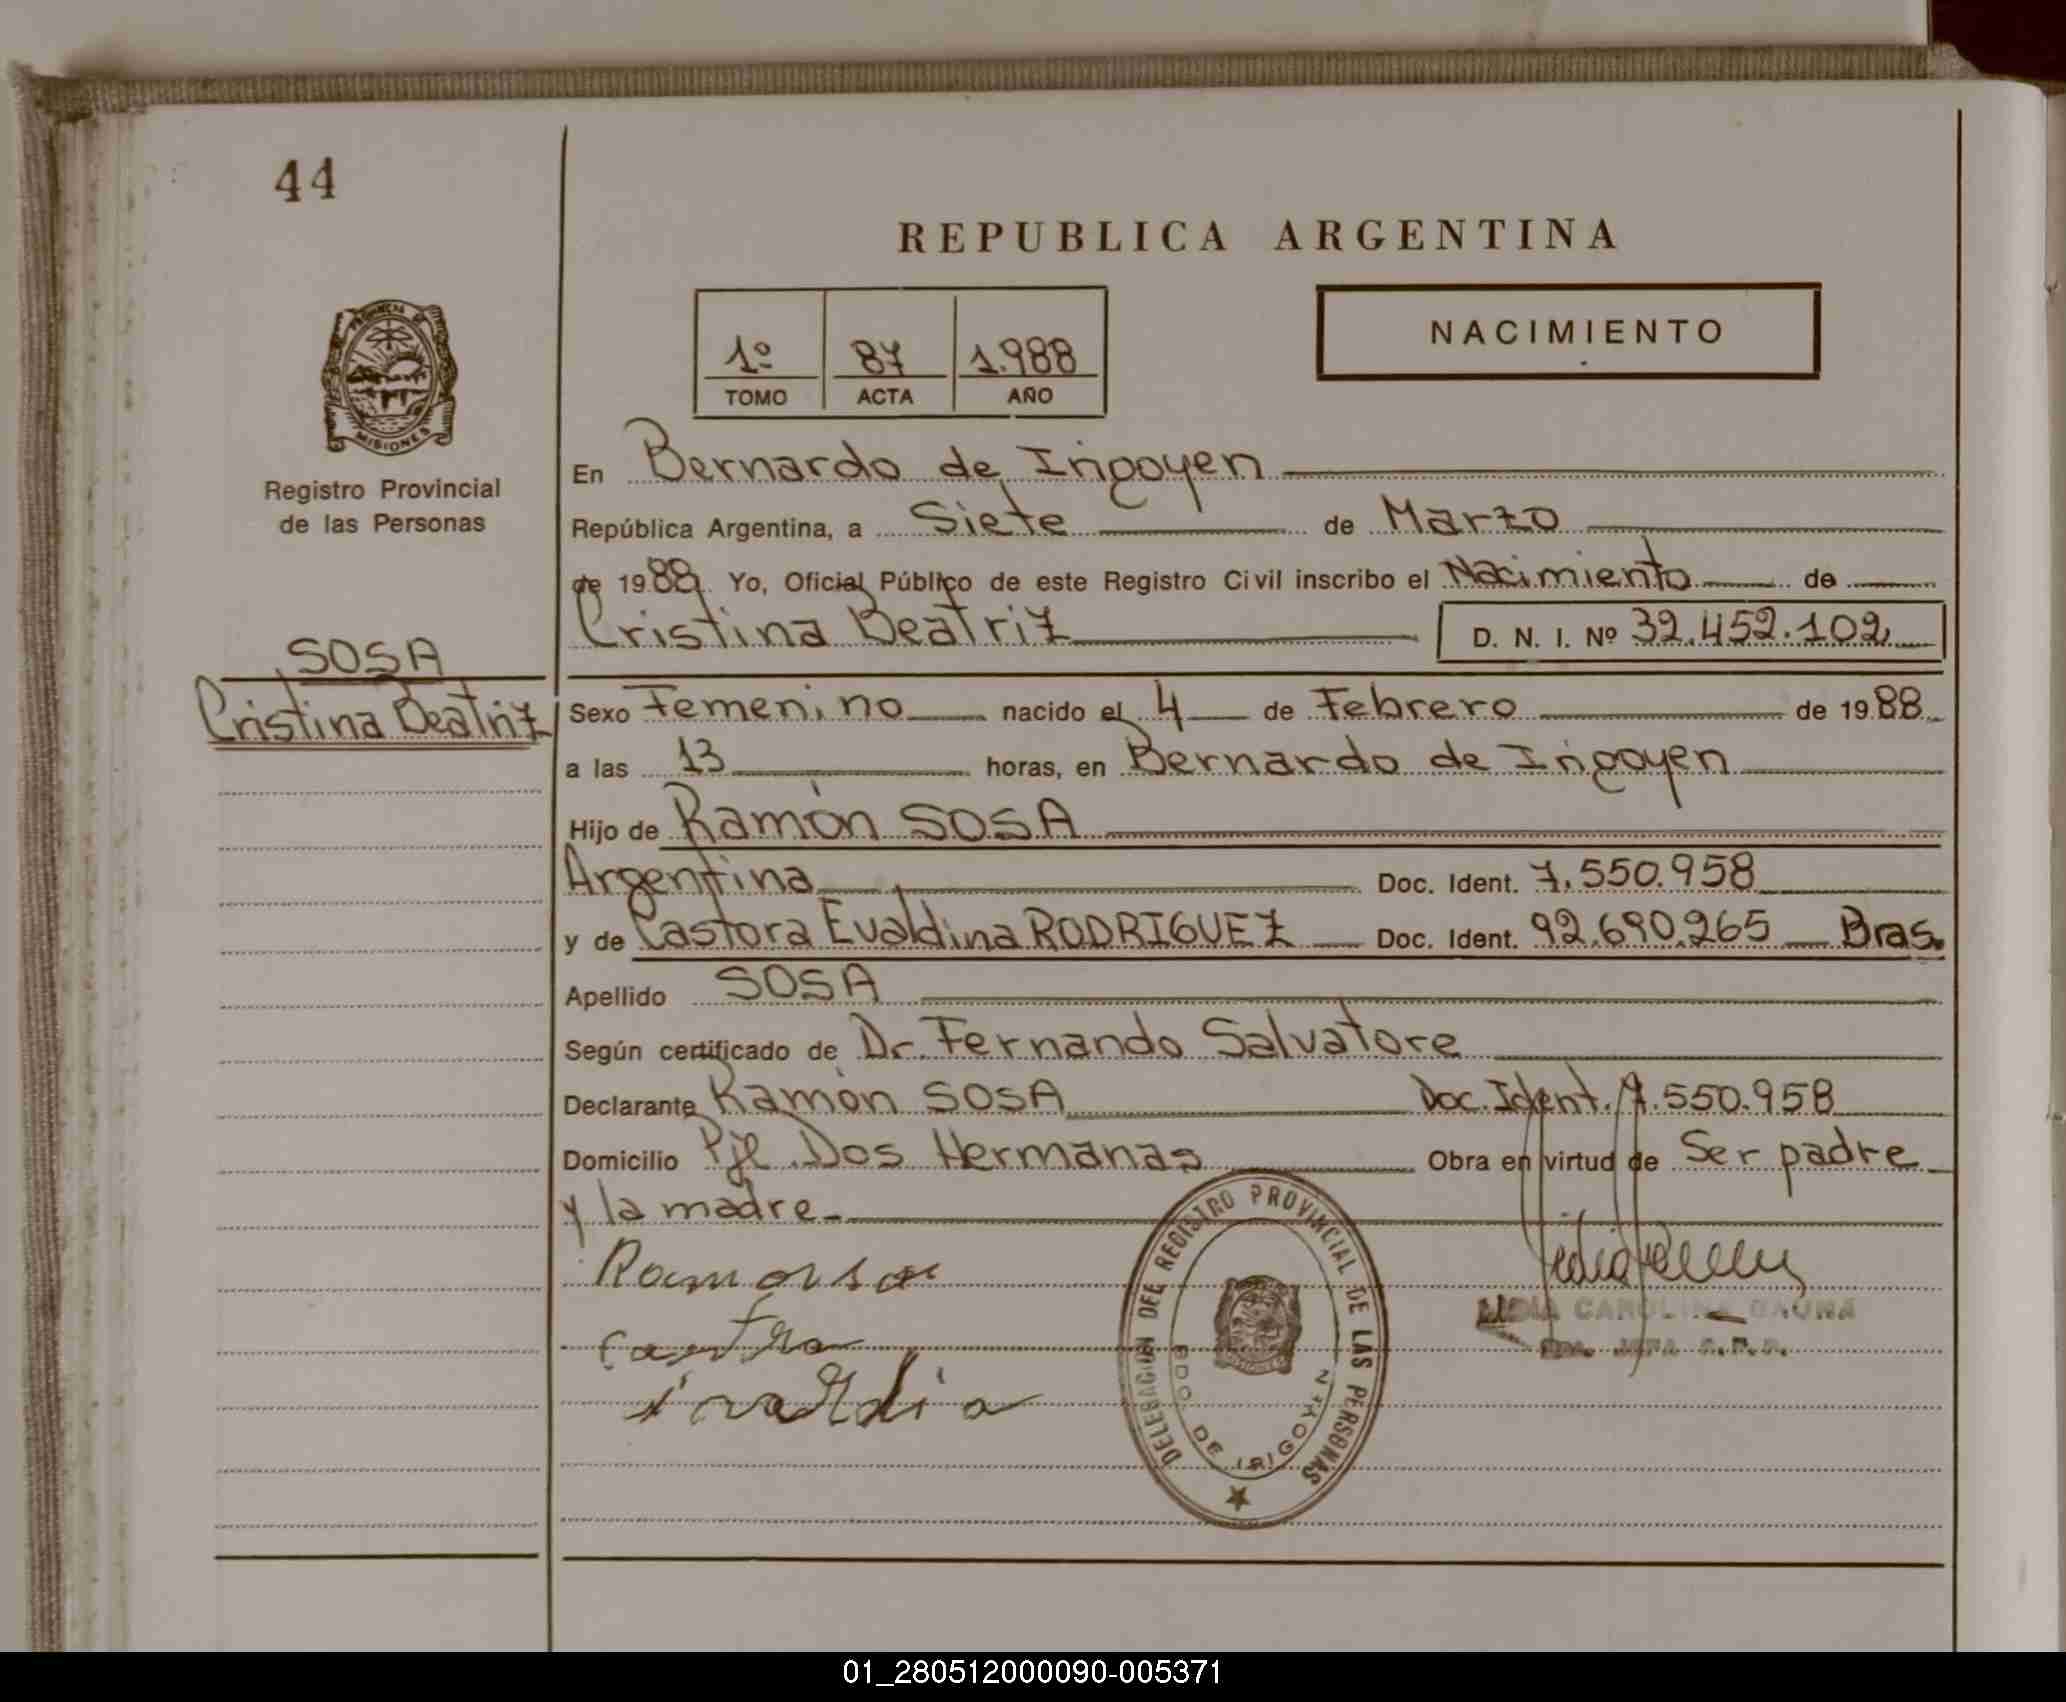 44
REPUBLICA ARGENTINA
PROVINCIA DE
MISIONES
Registro Provincial
de las Personas
1º 87 1.988
TOMO ACTA AÑO
NACIMIENTO
En Bernardo de Irigoyen
República Argentina, a Siete de Marzo
de 1988. Yo, Oficial Público de este Registro Civil inscribo el Nacimiento de
Cristina Beatriz D. N. I. Nº 32.452.102
SOSA
Cristina Beatriz
Sexo Femenino nacido el 4 de Febrero de 1988
a las 13 horas, en Bernardo de Irigoyen
Hijo de Ramón SOSA
Argentina Doc. Ident. 7.550.958
y de Castora Evaldina RODRIGUEZ Doc. Ident. 92.690.265 Bras.
Apellido SOSA
Según certificado de Dr. Fernando Salvatore
Declarante Ramón SOSA Doc. Ident. 7.550.958
Domicilio Pje Dos Hermanas Obra en virtud de Ser padre
y la madre
DELEGACION DEL REGISTRO PROVINCIAL DE LAS PERSONAS
BDO. DE IRIGOYEN
LIDIA CAROLINA GAUNA
JEFA
01_280512000090-005371